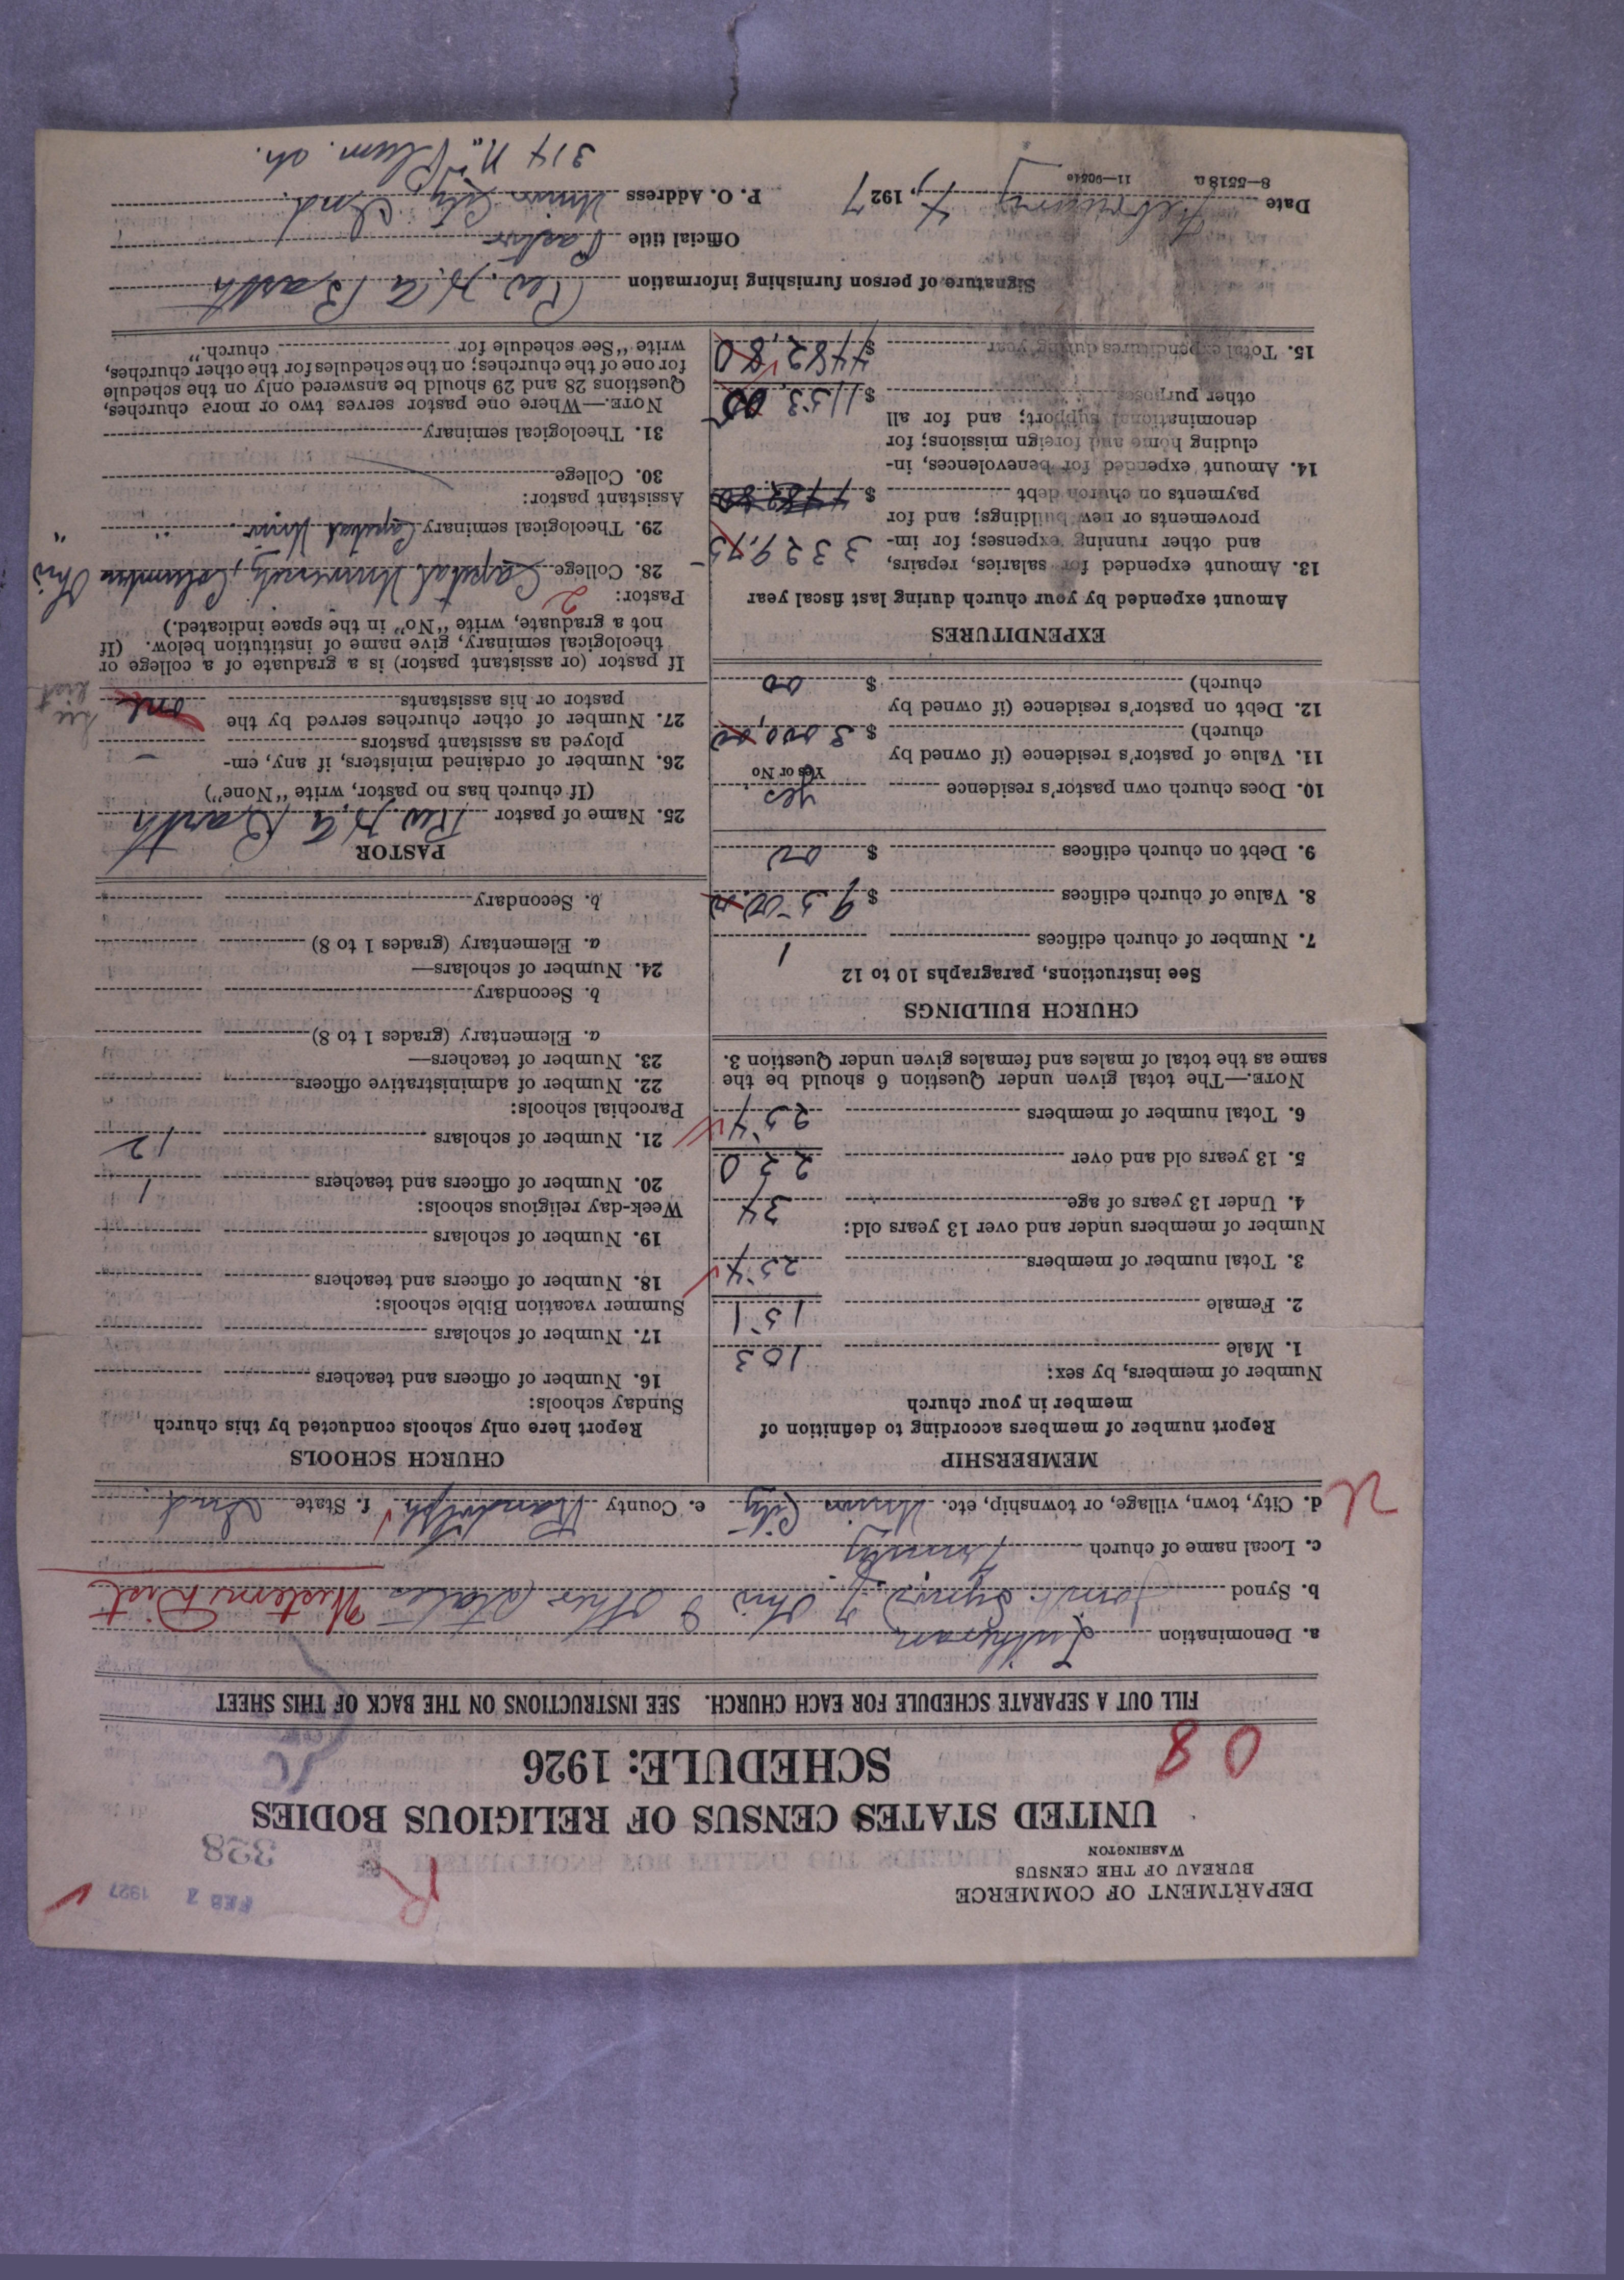 DEPARTMENT OF COMMERCE
BUREAU OF THE CENSUS
WASHINGTON
FEB 7 1927
328
R
UNITED STATES CENSUS OF RELIGIOUS BODIES
SCHEDULE: 1926
08
FILL OUT A SEPARATE SCHEDULE FOR EACH CHURCH. SEE INSTRUCTIONS ON THE BACK OF THIS SHEET
a. Denomination Lutheran
b. Synod Joint Synod of Ohio & Other States Western Dist
c. Local name of church Trinity
d. City, town, village, or township, etc. Union City e. County Randolph f. State Ind.
U
MEMBERSHIP
Report number of members according to definition of
member in your church
Number of members, by sex:
1. Male 103
2. Female 151
3. Total number of members 254
Number of members under and over 13 years old:
4. Under 13 years of age 34
5. 13 years old and over 220
6. Total number of members 254
NOTE.—The total given under Question 6 should be the
same as the total of males and females given under Question 3.
CHURCH BUILDINGS
See instructions, paragraphs 10 to 12
7. Number of church edifices 1
8. Value of church edifices $ 9500.00
9. Debt on church edifices $ 00
10. Does church own pastor's residence yes
Yes or No
11. Value of pastor's residence (if owned by
church) $ 3000,00
12. Debt on pastor's residence (if owned by
church) $ 00
EXPENDITURES
Amount expended by your church during last fiscal year
13. Amount expended for salaries, repairs,
and other running expenses; for im-
provements or new buildings; and for
payments on church debt $ 3329.75
14. Amount expended for benevolences, in-
cluding home and foreign missions; for
denominational support; and for all
other purposes $ 1153.05
15. Total expenditures during year $ 4482.80
CHURCH SCHOOLS
Report here only schools conducted by this church
Sunday schools:
16. Number of officers and teachers
17. Number of scholars
Summer vacation Bible schools:
18. Number of officers and teachers
19. Number of scholars
Week-day religious schools:
20. Number of officers and teachers 1
21. Number of scholars 12
Parochial schools:
22. Number of administrative officers
23. Number of teachers—
a. Elementary (grades 1 to 8)
b. Secondary
24. Number of scholars—
a. Elementary (grades 1 to 8)
b. Secondary
PASTOR
25. Name of pastor Rev. H. A. Barth
(If church has no pastor, write "None")
26. Number of ordained ministers, if any, em-
ployed as assistant pastors –
27. Number of other churches served by the
pastor or his assistants one
See list
If pastor (or assistant pastor) is a graduate of a college or
theological seminary, give name of institution below. (If
not a graduate, write "No" in the space indicated.)
Pastor: 2
28. College Capital University, Columbus Ohio
29. Theological seminary Capital Univ. " "
Assistant pastor:
30. College
31. Theological seminary
NOTE.—Where one pastor serves two or more churches,
Questions 28 and 29 should be answered only on the schedule
for one of the churches; on the schedules for the other churches,
write "See schedule for church."
Signature of person furnishing information Rev. H. A. Barth
Official title Pastor
Date February 4, 1927 P. O. Address Union City, Ind.
8—5518 a 11—9054a
314 N. Plum. St.